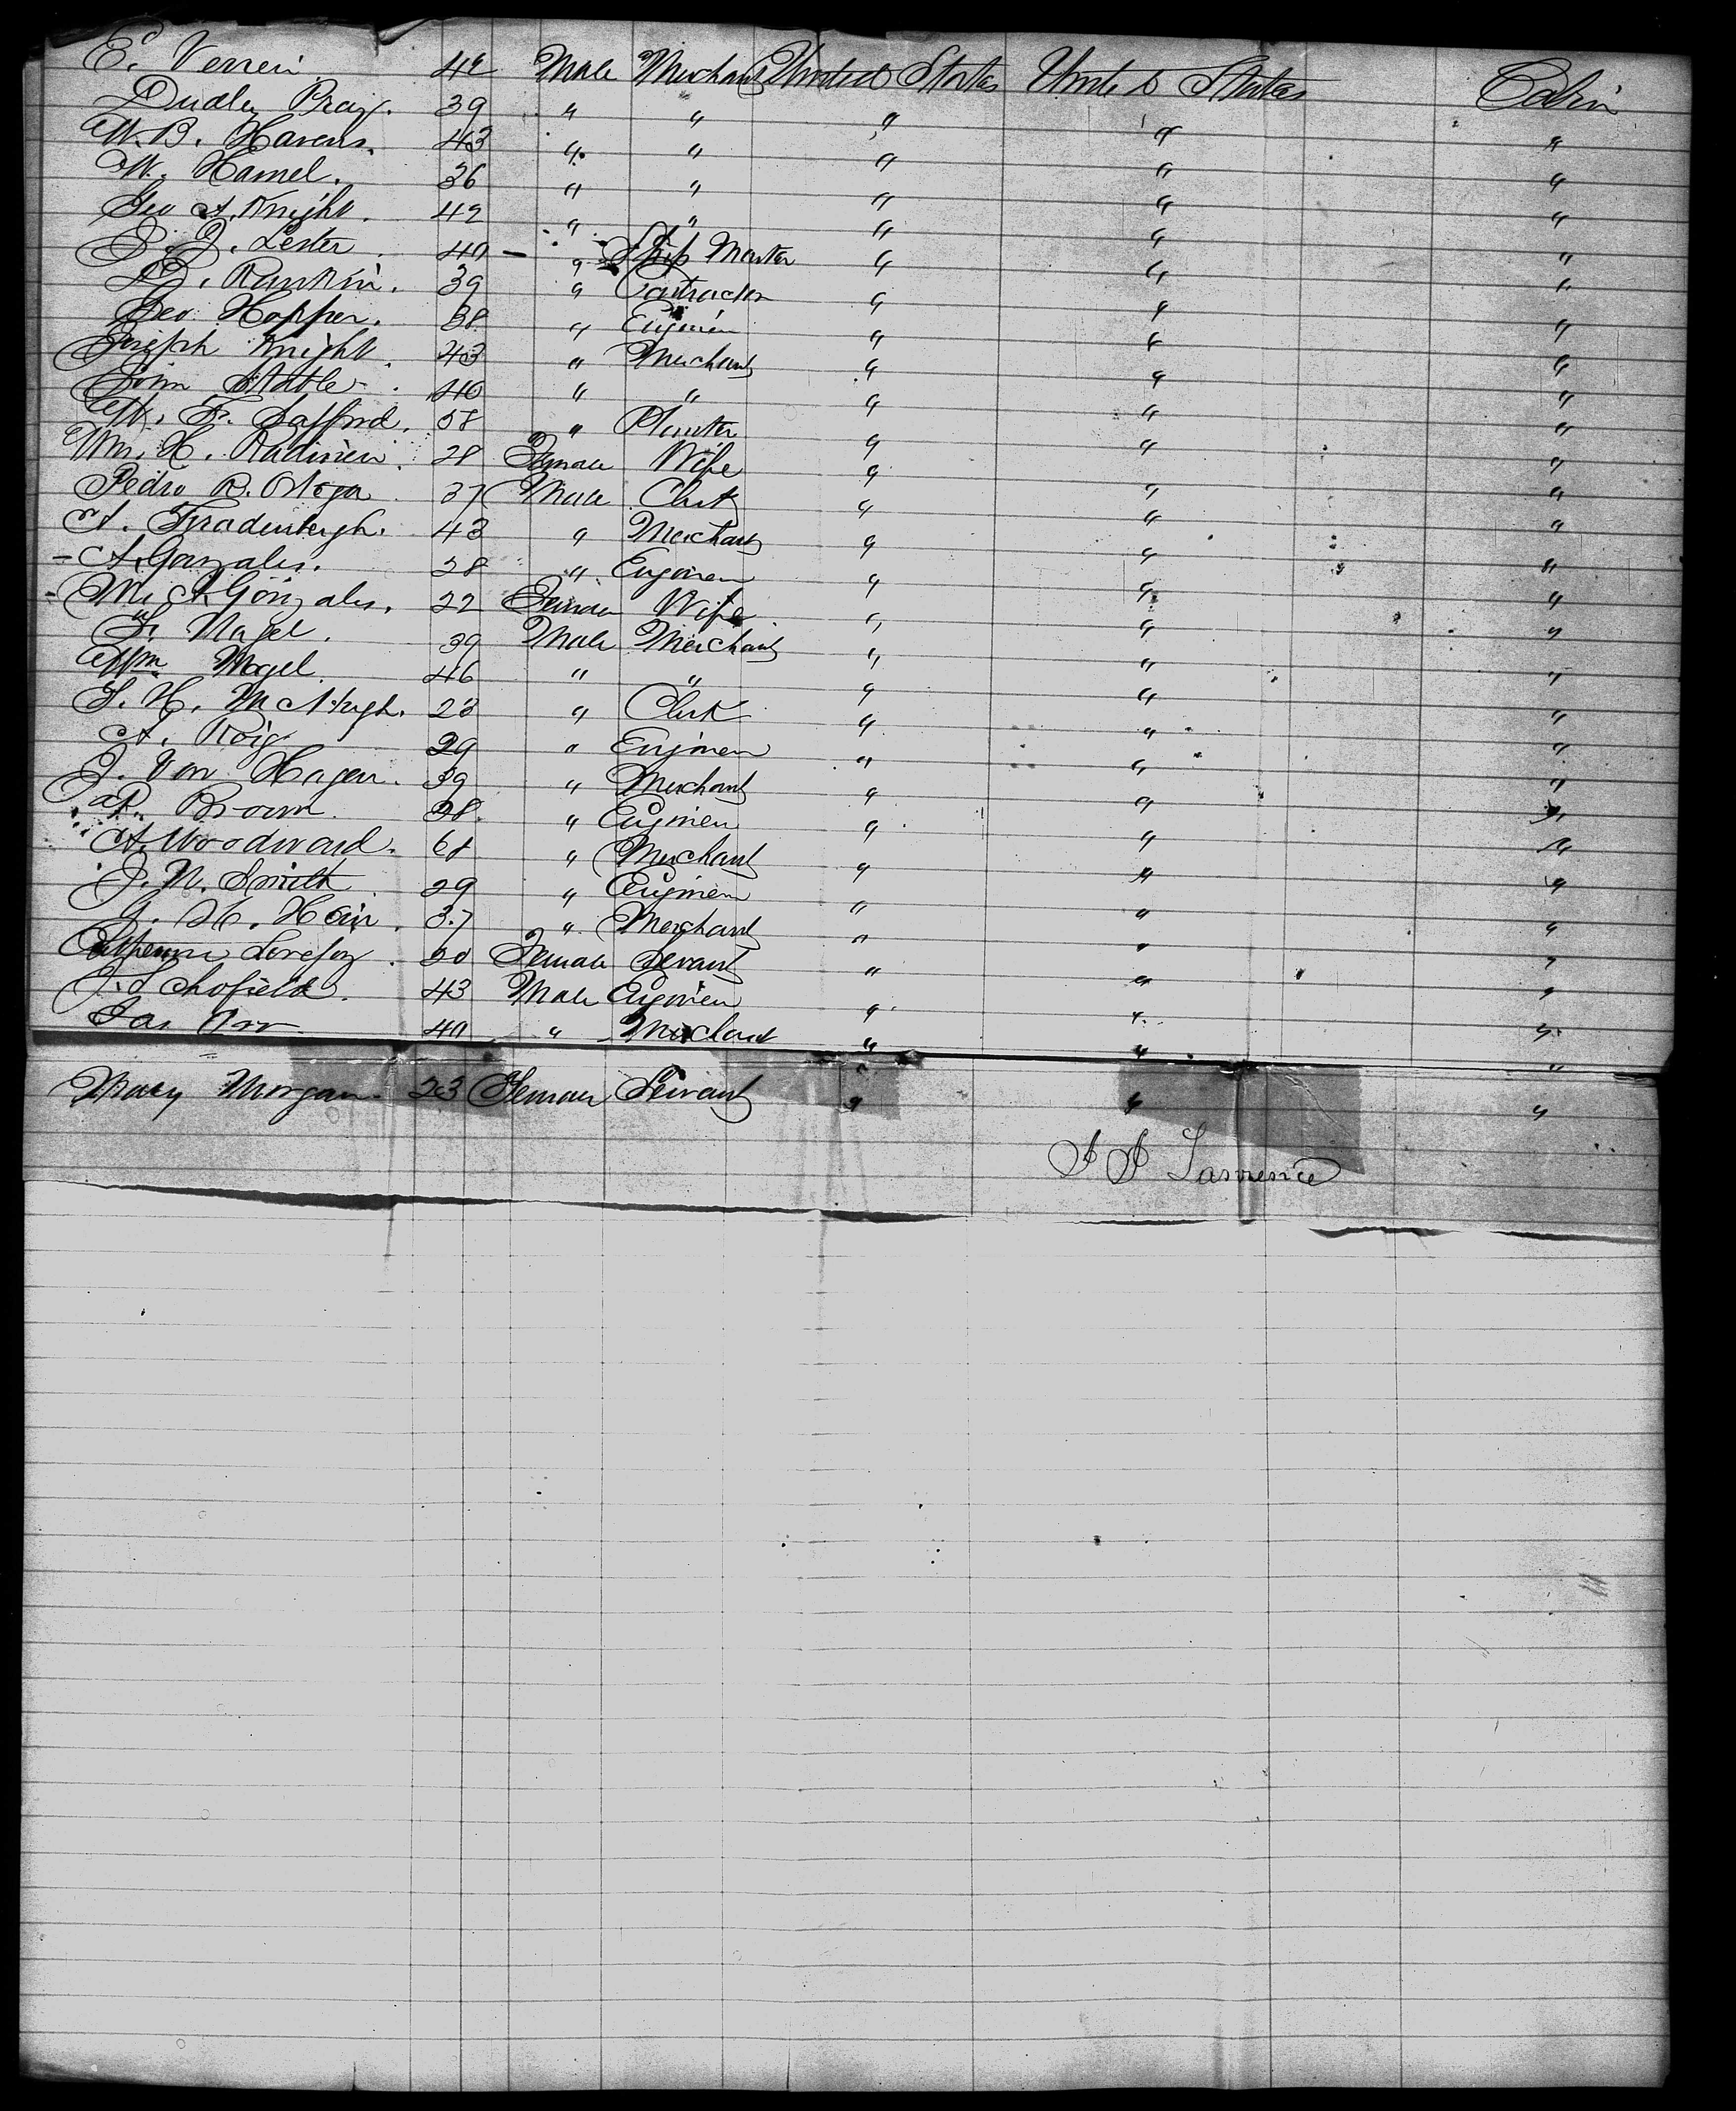 E. Verren 42 Male Merchant United States United States Cabin
Dudley Pray. 39 " " " " "
W. B. Havens. 43 " " " " "
W. Hamel. 36 " " " " "
Geo A. Knight. 42 " " " " "
J. J. Lester. 40 " Ship Master " " "
D. Rankin. 39 " Contractor " " "
Geo. Hopper. 38 " Engineer " " "
Joseph Knight. 43 " Merchant " " "
John 40 " " " " "
W. F. Safford. 58 " Planter " " "
28 Female Wife " " "
Pedro R. 37 Male Clerk " " "
A. 43 " Merchant " " "
- A. Gonzales. 28 " Engineer " " "
- Mrs A Gonzales. 22 Female Wife " " "
F. Nagel. 39 Male Merchant " " "
Wm Nagel. 46 " " " " "
S. H. McHugh. 23 " Clerk " " "
A. Roig 29 " Engineer " " "
J. Von Hagen. 39 " Merchant " " "
R. Brown. 28. " Engineer " " "
A. Woodward. 61 " Merchant " " "
J. W. Smith 29 " Engineer " " "
J. H. Hein. 37 " Merchant " " "
Catherine 20 Female Servant " " "
J. Schofield. 43 Male Engineer " " "
Jas Orr 40 " Merchant " " "
Mary Morgan. 23 Female Servant " " "
Lawrence